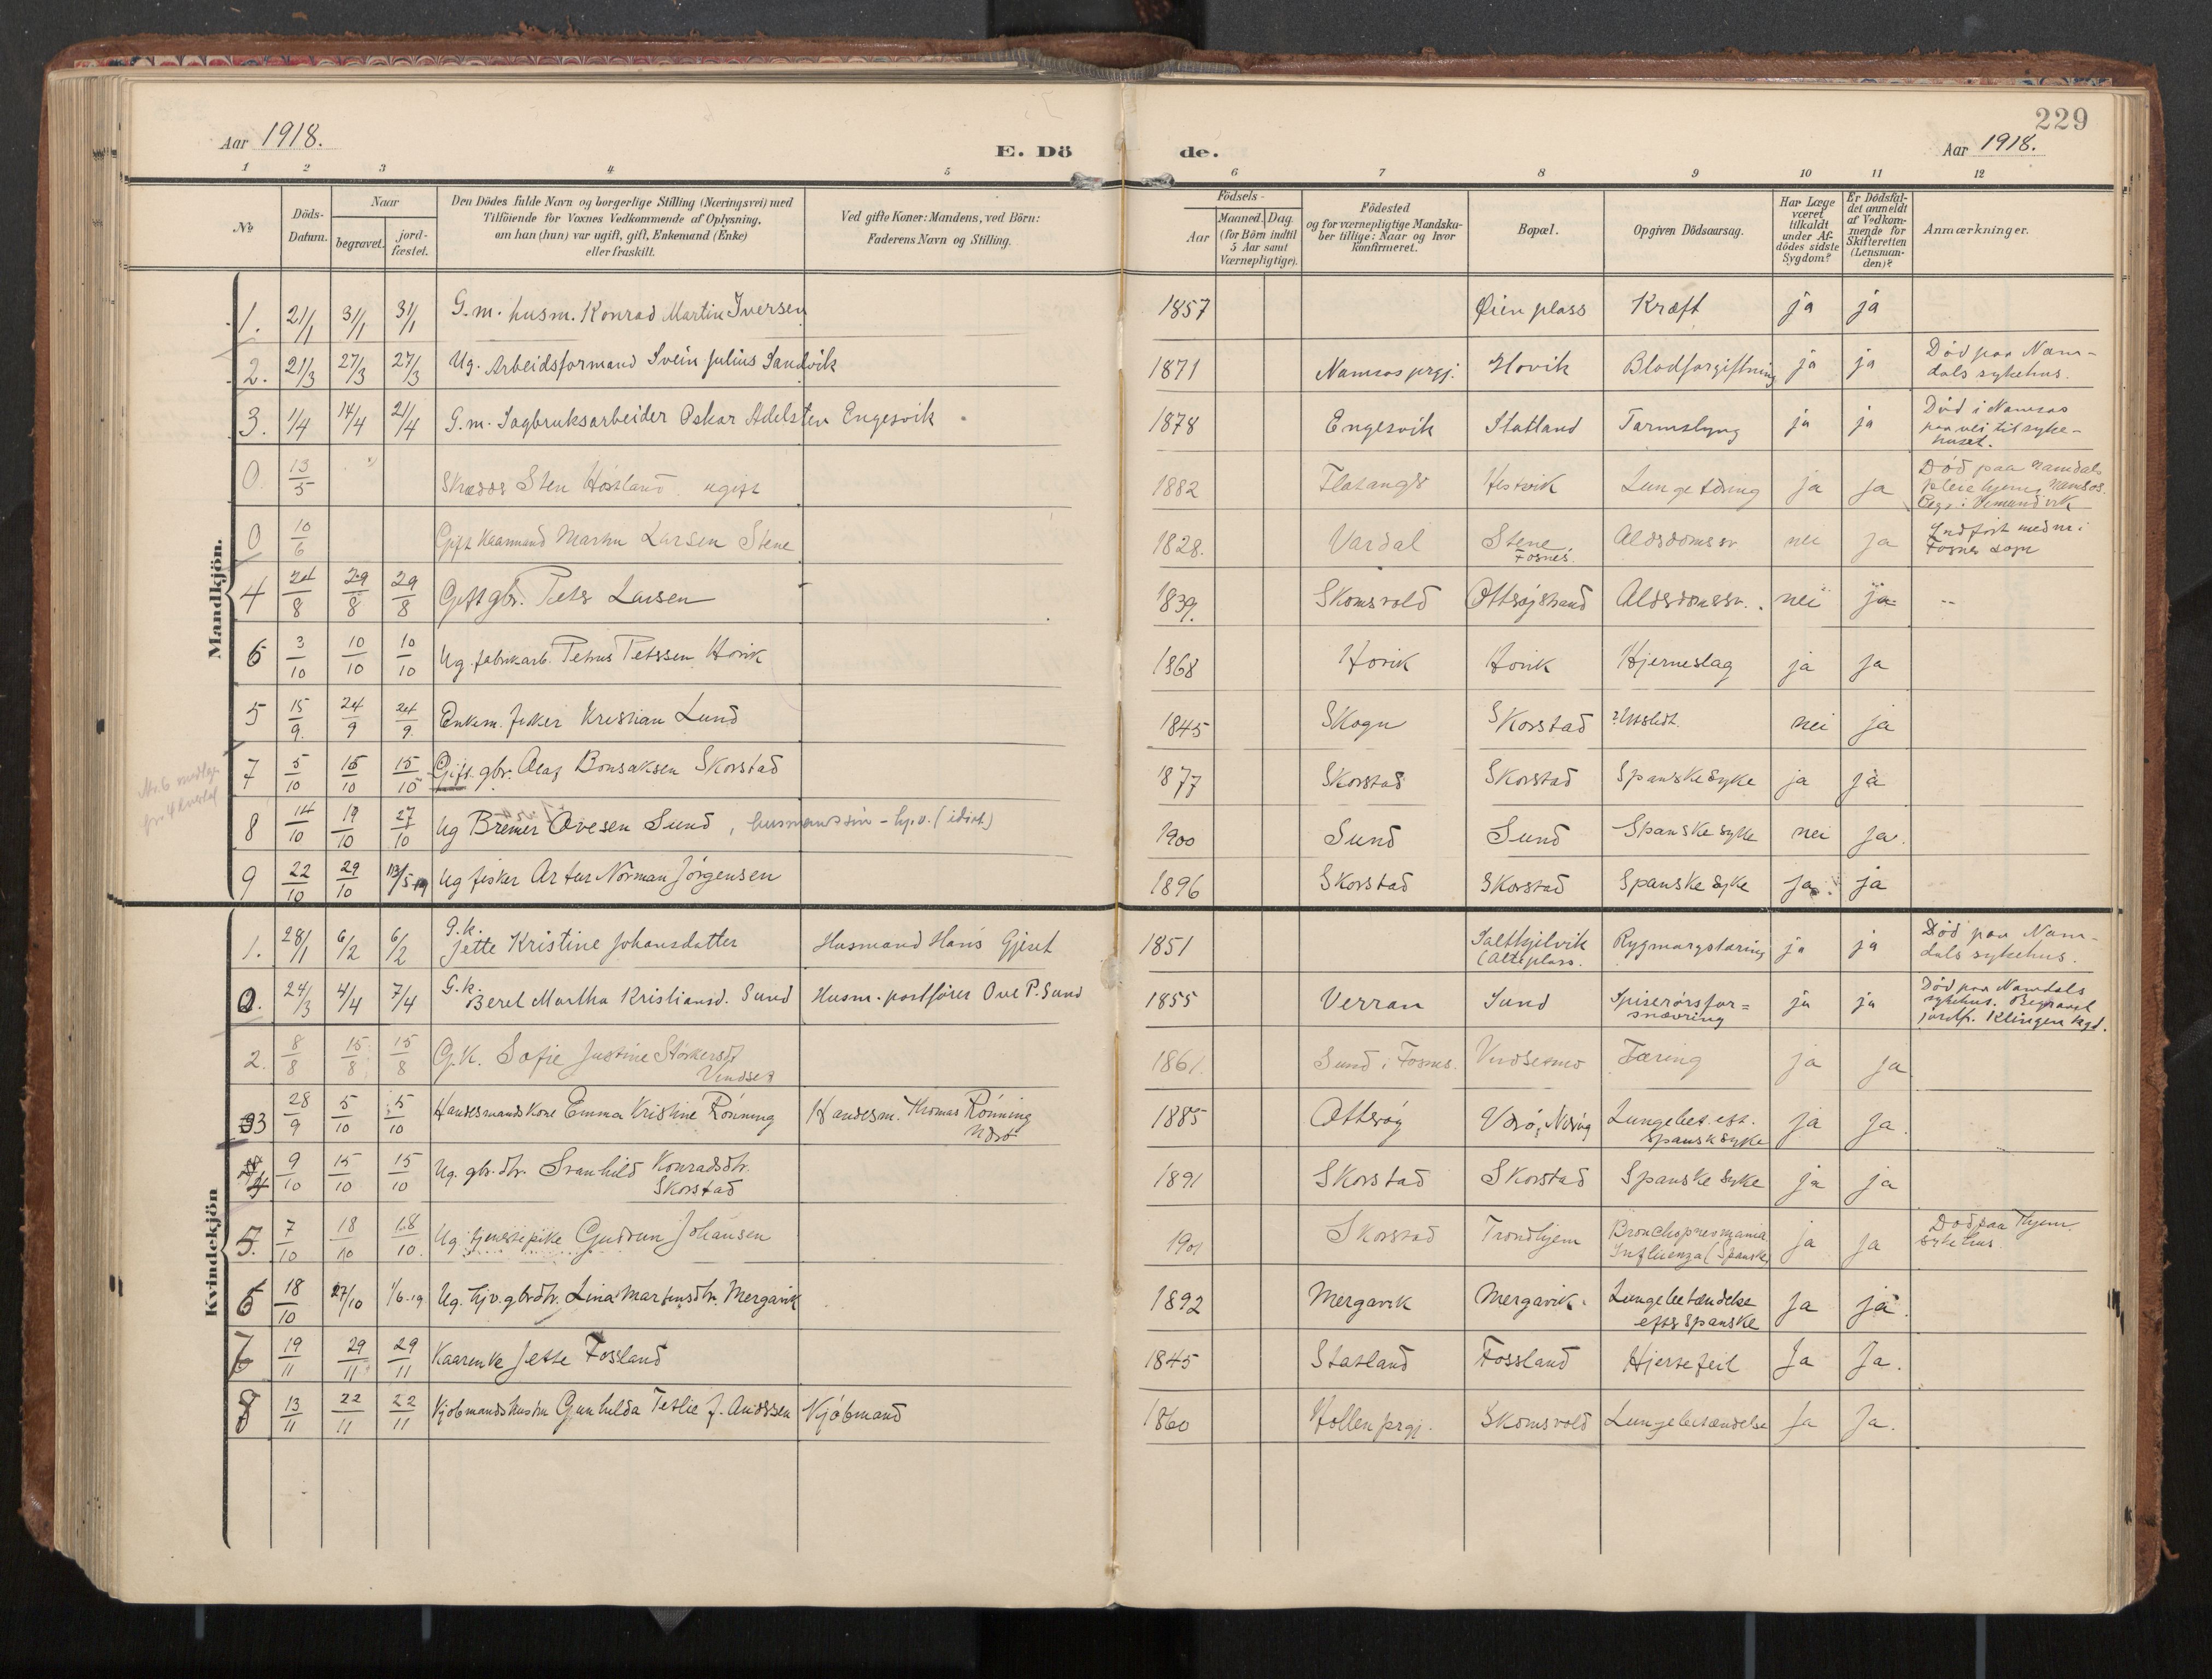 229
Aar 1918.
E. Dö de.
Aar 1918.
1 2 3 4 5 6 7 8 9 10 11 12
No
Döds-Datum.
Naar
begravet.
jord-fæstet.
Den Dödes fulde Navn og borgerlige Stilling (Næringsvei) med
Tilföiende for Voxnes Vedkommende af Oplysning,
om han (hun) var ugift, gift, Enkemand (Enke)
eller fraskilt.
Ved gifte Koner: Mandens, ved Börn:
Faderens Navn og Stilling.
Födsels-
Aar
Maaned. Dag.
(for Börn indtil
5 Aar samt
Værnepligtige).
Födested
og for værnepligtige Mandska-
ber tillige: Naar og hvor
konfirmeret.
Bopæl.
Opgiven Dödsaarsag.
Har Læge
været
tilkaldt
under Af-
dödes sidste
Sygdom?
Er Dödsfal-
det anmeldt
af Vedkom-
mende for
Skifteretten
(Lensman-
den)?
Anmærkninger.
Mandkjön.
1. 21/1 31/1 31/1 G.m. husm. Konrad Martin Iversen 1857 Øien plass Kræft ja ja
2. 21/3 27/3 27/3 Ug. Arbeidsformand Svein Julius Sandvik 1871 Namsos prgj. Hovik Blodforgiftning ja ja Död paa Nam-
dals sykehus.
3. 1/4 14/4 21/4 G.m. Sagbruksarbeider Oskar Adelsten Engesvik 1878 Engesvik Statland Tarmslyng ja ja Död i Namsos
paa vei til syke-
huset.
0. 13/5 Skrædder Sten ugift 1882 Flatanger Hestvik Lungetæring ja ja Död paa Namdals
pleiehjem, Namsos.
0 10/6 Gift Kaarmand Martin Larsen Stene 1828. Vardal Stene
Fosnes. Aldsdomssv nei ja Indfört med nr i
Fosnes sogn
4 24/8 29/8 29/8 Gift gbr. Peter Larsen 1839. Skomsvold Otterøjstrand Aldsdomssv. nei ja --
6 3/10 10/10 10/10 Ug. fabrikarb. Petrus Peterssen Hovik 1868 Hovik Hovik Hjerneslag ja ja
5 15/9. 24/9 24/9 Enkem. fisker Kristian Lund 1845 Skogn Skorstad nei ja
Nr. 6
7 5/10 15/10 15/10 Gift. gbr. Olaf Bonsaksen Skorstad 1877 Skorstad Skorstad Spanske syke ja ja
8 14/10 19/10 27/10 Ug Breiner Ovesen Sund, husmandssön - hj.v. (idiot) 1900 Sund Sund Spanske syke nei ja.
9 22/10 29/10 13/5 19 Ug fisker Artur Norman Jörgensen 1896 Skorstad Skorstad Spanske syke ja. ja
Kvindekjön
1. 28/1 6/2 6/2 G.k.
Jette Kristine Johansdatter Husmand Hans Gjeset 1851 Saltkjelvik
(Alte plass. Rygmargstæring ja ja Död paa Nam-
dals sykehus.
0. 24/3 4/4 7/4 G.k.
Beret Martha Kristiansd. Sund Husm. postfører Ove P. Sund 1855 Verran Sund Spiserørsfor=
snævring ja ja Död paa Namdals
sykehus. Begravet
jordf. Klingen kgd.
2. 8/8 15/8 15/8 G.K. Sofie Justine Störkersdt
Vindset 1861. Sund i Fosnes. Vindsetmo Tæring ja ja
3 28/9 5/10 5/10 Handesmandskone Emma Kristine Rönning Handesm. Thomas Rönning 1885 Otterøy Lungebet. eft.
Spansk syke ja ja.
4 9/10 15/10 15/10 Ug. gbr. dtr. Svanhild Konradsdtr.
Skorstad 1891 Skorstad Skorstad Spanske syke ja ja
5. 7/10 18/10 18/10. Ug. tjenestepike Gudrun Johansen 1901 Skorstad Trondhjem Bronchopneomania
Influenza (Spanske) ja ja Död paa Thjem.
sykehus.
6 18/10 27/10 1/6.19 Ug. hjv. gbrdtr. Lina Martinsdtr. Mergavik 1892 Mergavik Mergavik. Lungebetændelse
efter spanske ja ja.
7 19/11 29/11 29/11 Kaarenke Jette Fosland 1845 Statland Fossland Hjertefeil Ja Ja.
8 13/11 22/11 22/11 Kjöbmandshustru Gunhilda Tetlie f. Anderssen Kjöbmand 1860 Kollen prgj. Skomsvold Lungebetændelse Ja Ja.